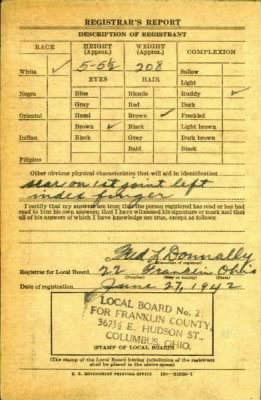 REGISTRAR'S REPORT
DESCRIPTION OF REGISTRANT
RACE HEIGHT (Approx.) WEIGHT (Approx.) COMPLEXION
White ✓ 5-5½ 208 Sallow
EYES HAIR Light
Negro Blue Blonde Ruddy ✓
Gray Red Dark
Oriental Hazel Brown ✓ Freckled
Brown ✓ Black Light brown
Indian Black Gray Dark brown
Bald Black
Filipino
Other obvious physical characteristics that will aid in identification
scar on 1st joint left
index finger
I certify that my answers are true; that the person registered has read or has had
read to him his own answers; that I have witnessed his signature or mark and that
all of his answers of which I have knowledge are true, except as follows:
Fred L Donnally
Registrar for Local Board 22 Franklin Ohio
Date of registration June 27, 1942
LOCAL BOARD No. 2
FOR FRANKLIN COUNTY
E. HUDSON ST.,
COLUMBUS, OHIO.
(STAMP OF LOCAL BOARD)
(The stamp of the Local Board having jurisdiction of the registrant
shall be placed in the above space.)
U. S. GOVERNMENT PRINTING OFFICE